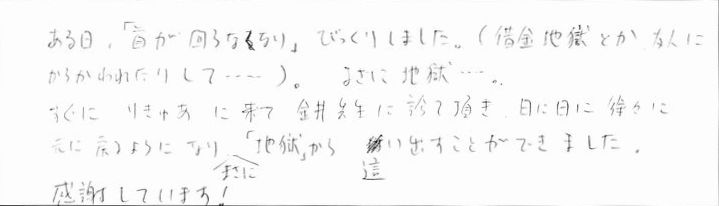 ある日、「首が回らなくなり」びっくりしました。(借金地獄とか、友人に
からかわれたりして……)。まさに地獄…。
すぐに りきゅあ に来て 金井先生に診て頂き、日に日に徐々に
元に戻るようになり、まさに「地獄」から這い出すことができました。
感謝しています!